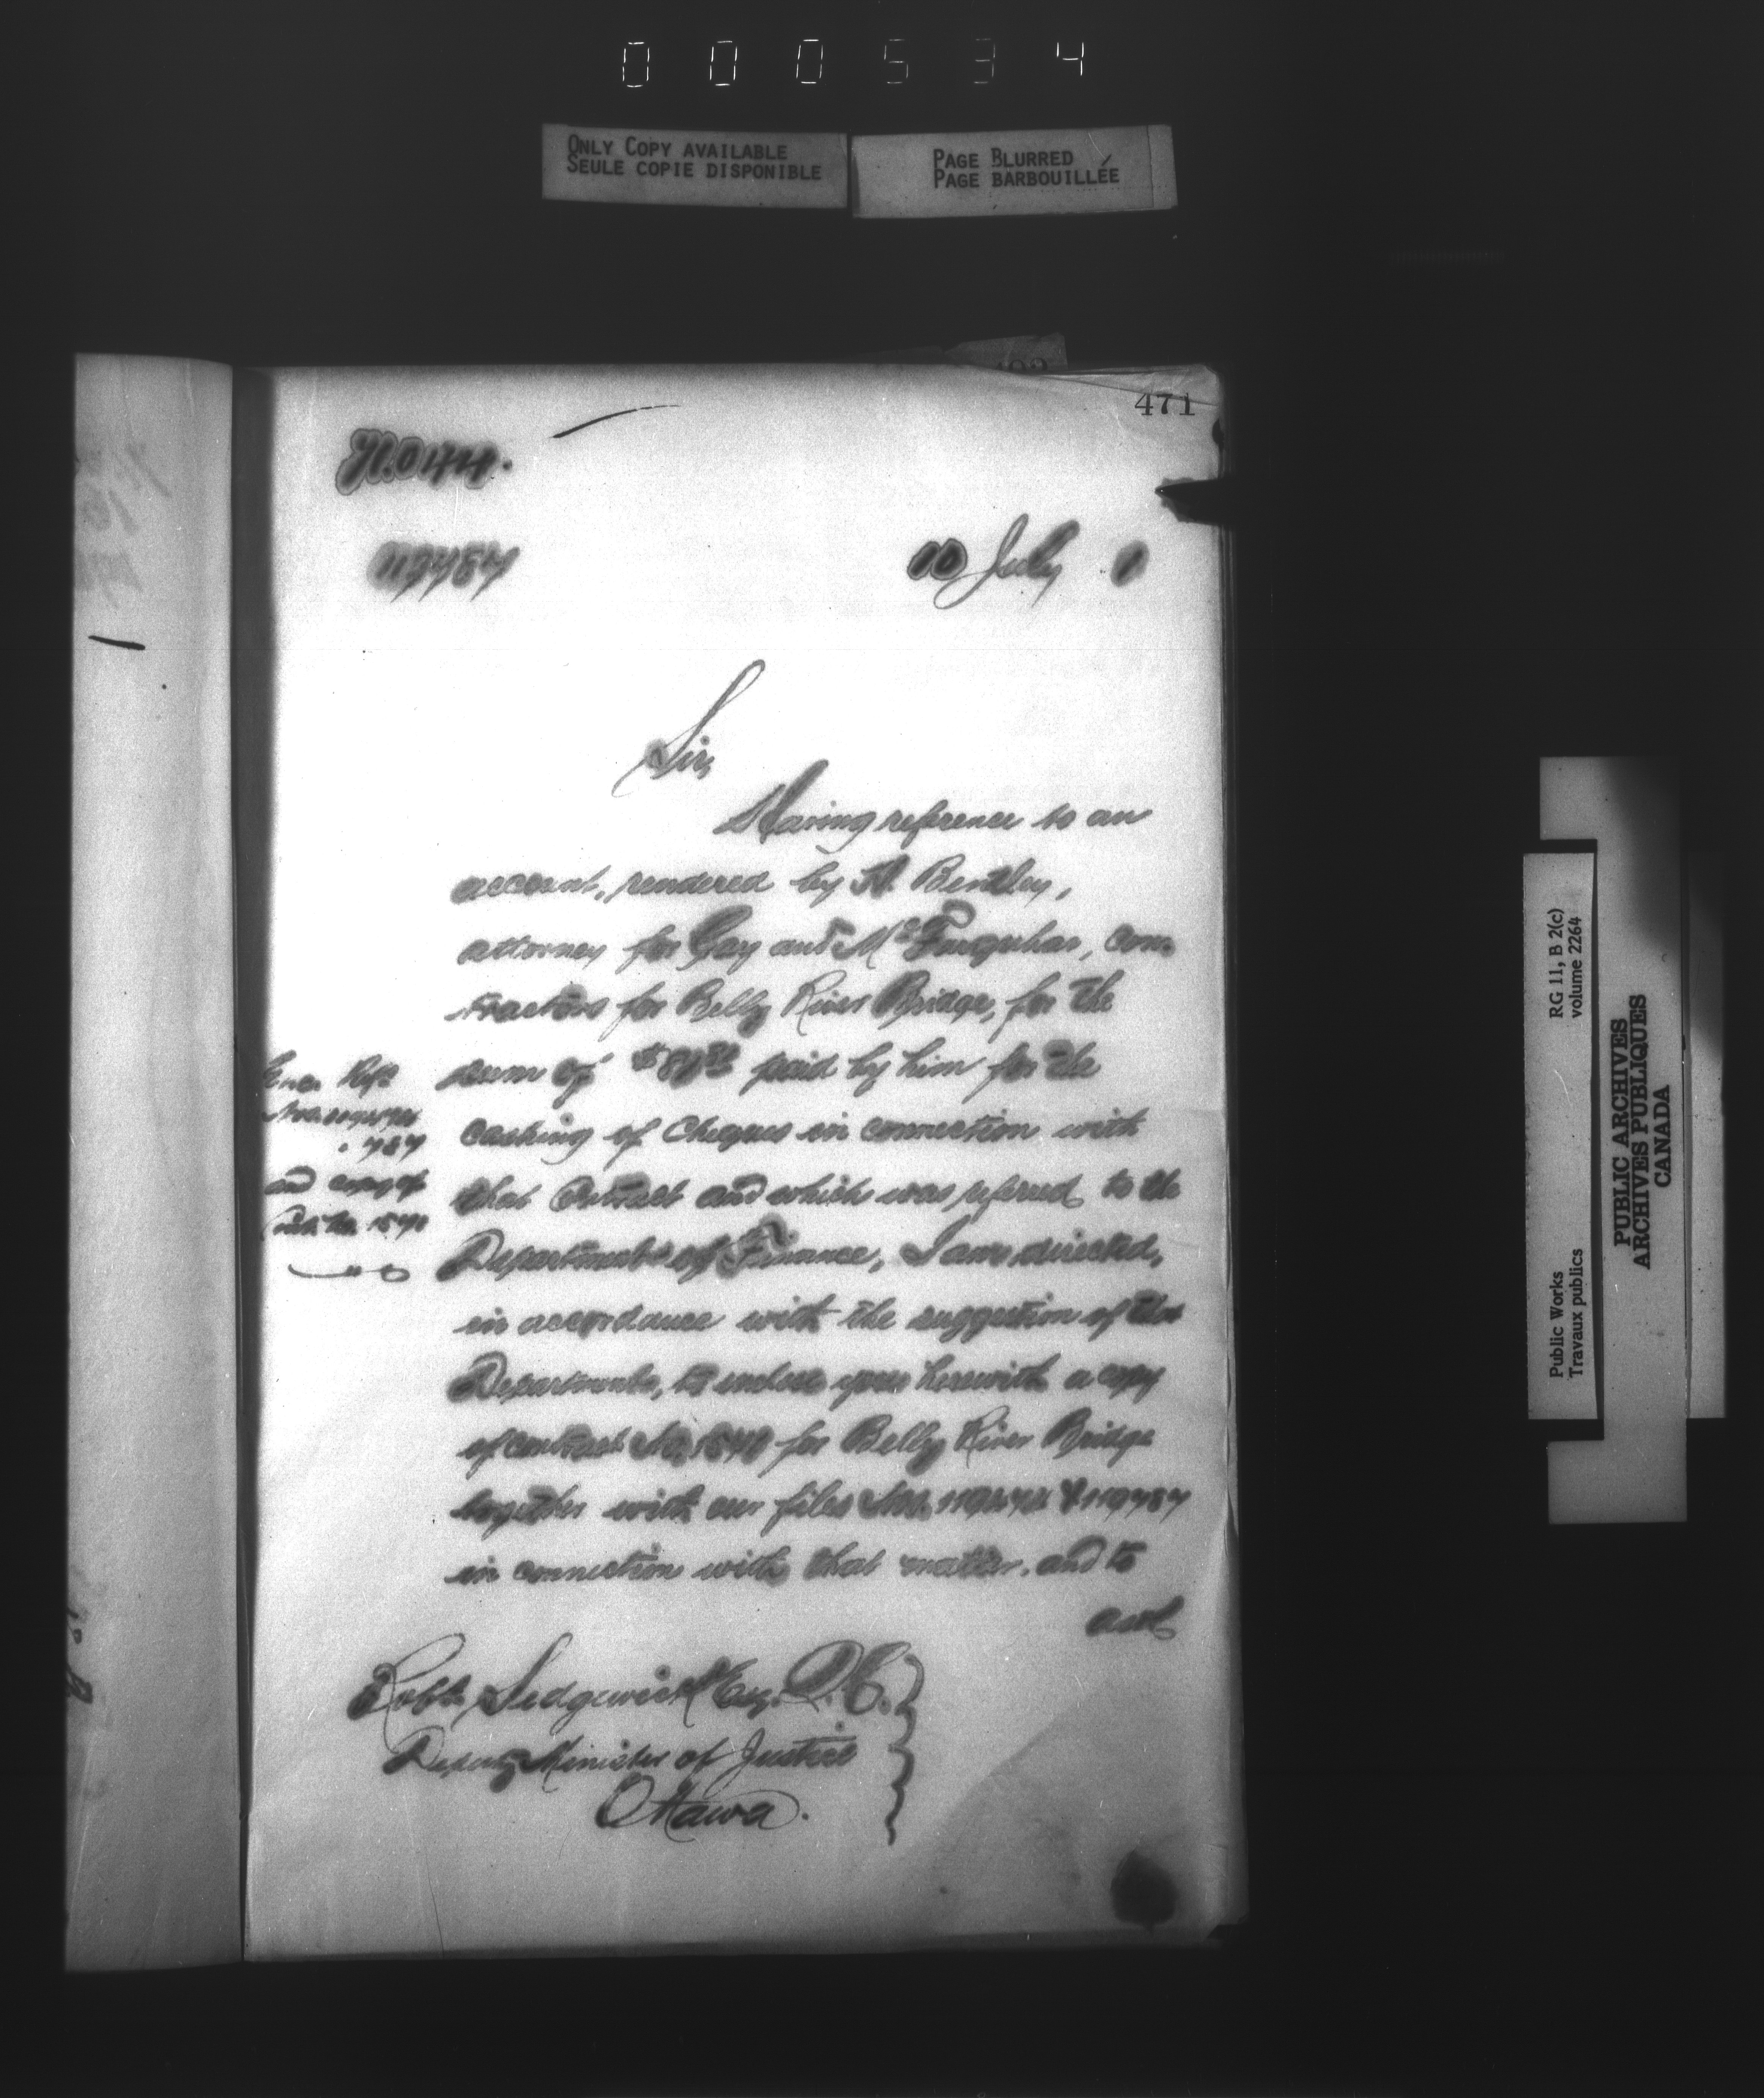 000534
ONLY COPY AVAILABLE
SEULE COPIE DISPONIBLE
PAGE BLURRED
PAGE BARBOUILLÉE
471
119787
10 July 1
Sir,
Having reference to an
account, rendered by H. Bentley,
attorney for Gay and McFarquhar, con-
tractors for Belly River Bridge, for the
sum of paid by him for the
cashing of Cheques in connection with
that Contract and which was referred to the
Department of Finance, I am directed,
in accordance with the suggestion of that
Department, to enclose you herewith a copy
of contract No. for Belly River Bridge
together with our files Nos. & 119787
in connection with that matter, and to
ask
787
and copy of
Robt. Sedgewick Esq. Q.C.
Deputy Minister of Justice
Ottawa.
Public Works
Travaux publics
RG 11, B 2(c)
volume 2264
PUBLIC ARCHIVES
ARCHIVES PUBLIQUES
CANADA